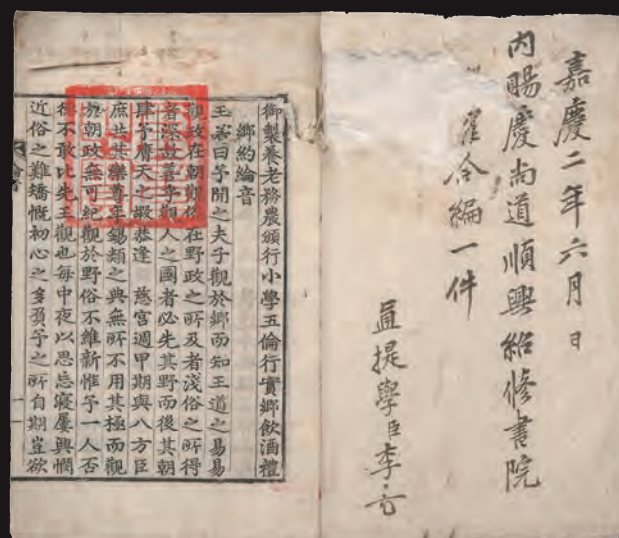 嘉慶二年六月 日
內賜慶尚道順興紹修書院
合編一件
直提學臣李
御製養老務農頒行小學五倫行實鄉飲酒禮
鄉約綸音
王若曰予聞之夫子觀於鄉而知王道之易易
觀政在朝觀俗在野政之所及者淺俗之所得
者深故善乎觀人之國者必先其野而後其朝
肆予膺天之嘏恭逢 慈宮週甲期與八方臣
庶共其樂尊年錫類之典無所不用其極而觀
於朝政無可紀觀於野俗不維新惟予一人否
德不敢比先王觀也每中夜以思忘寢屢興憫
近俗之難矯慨初心之多負予之所自期豈欲
一